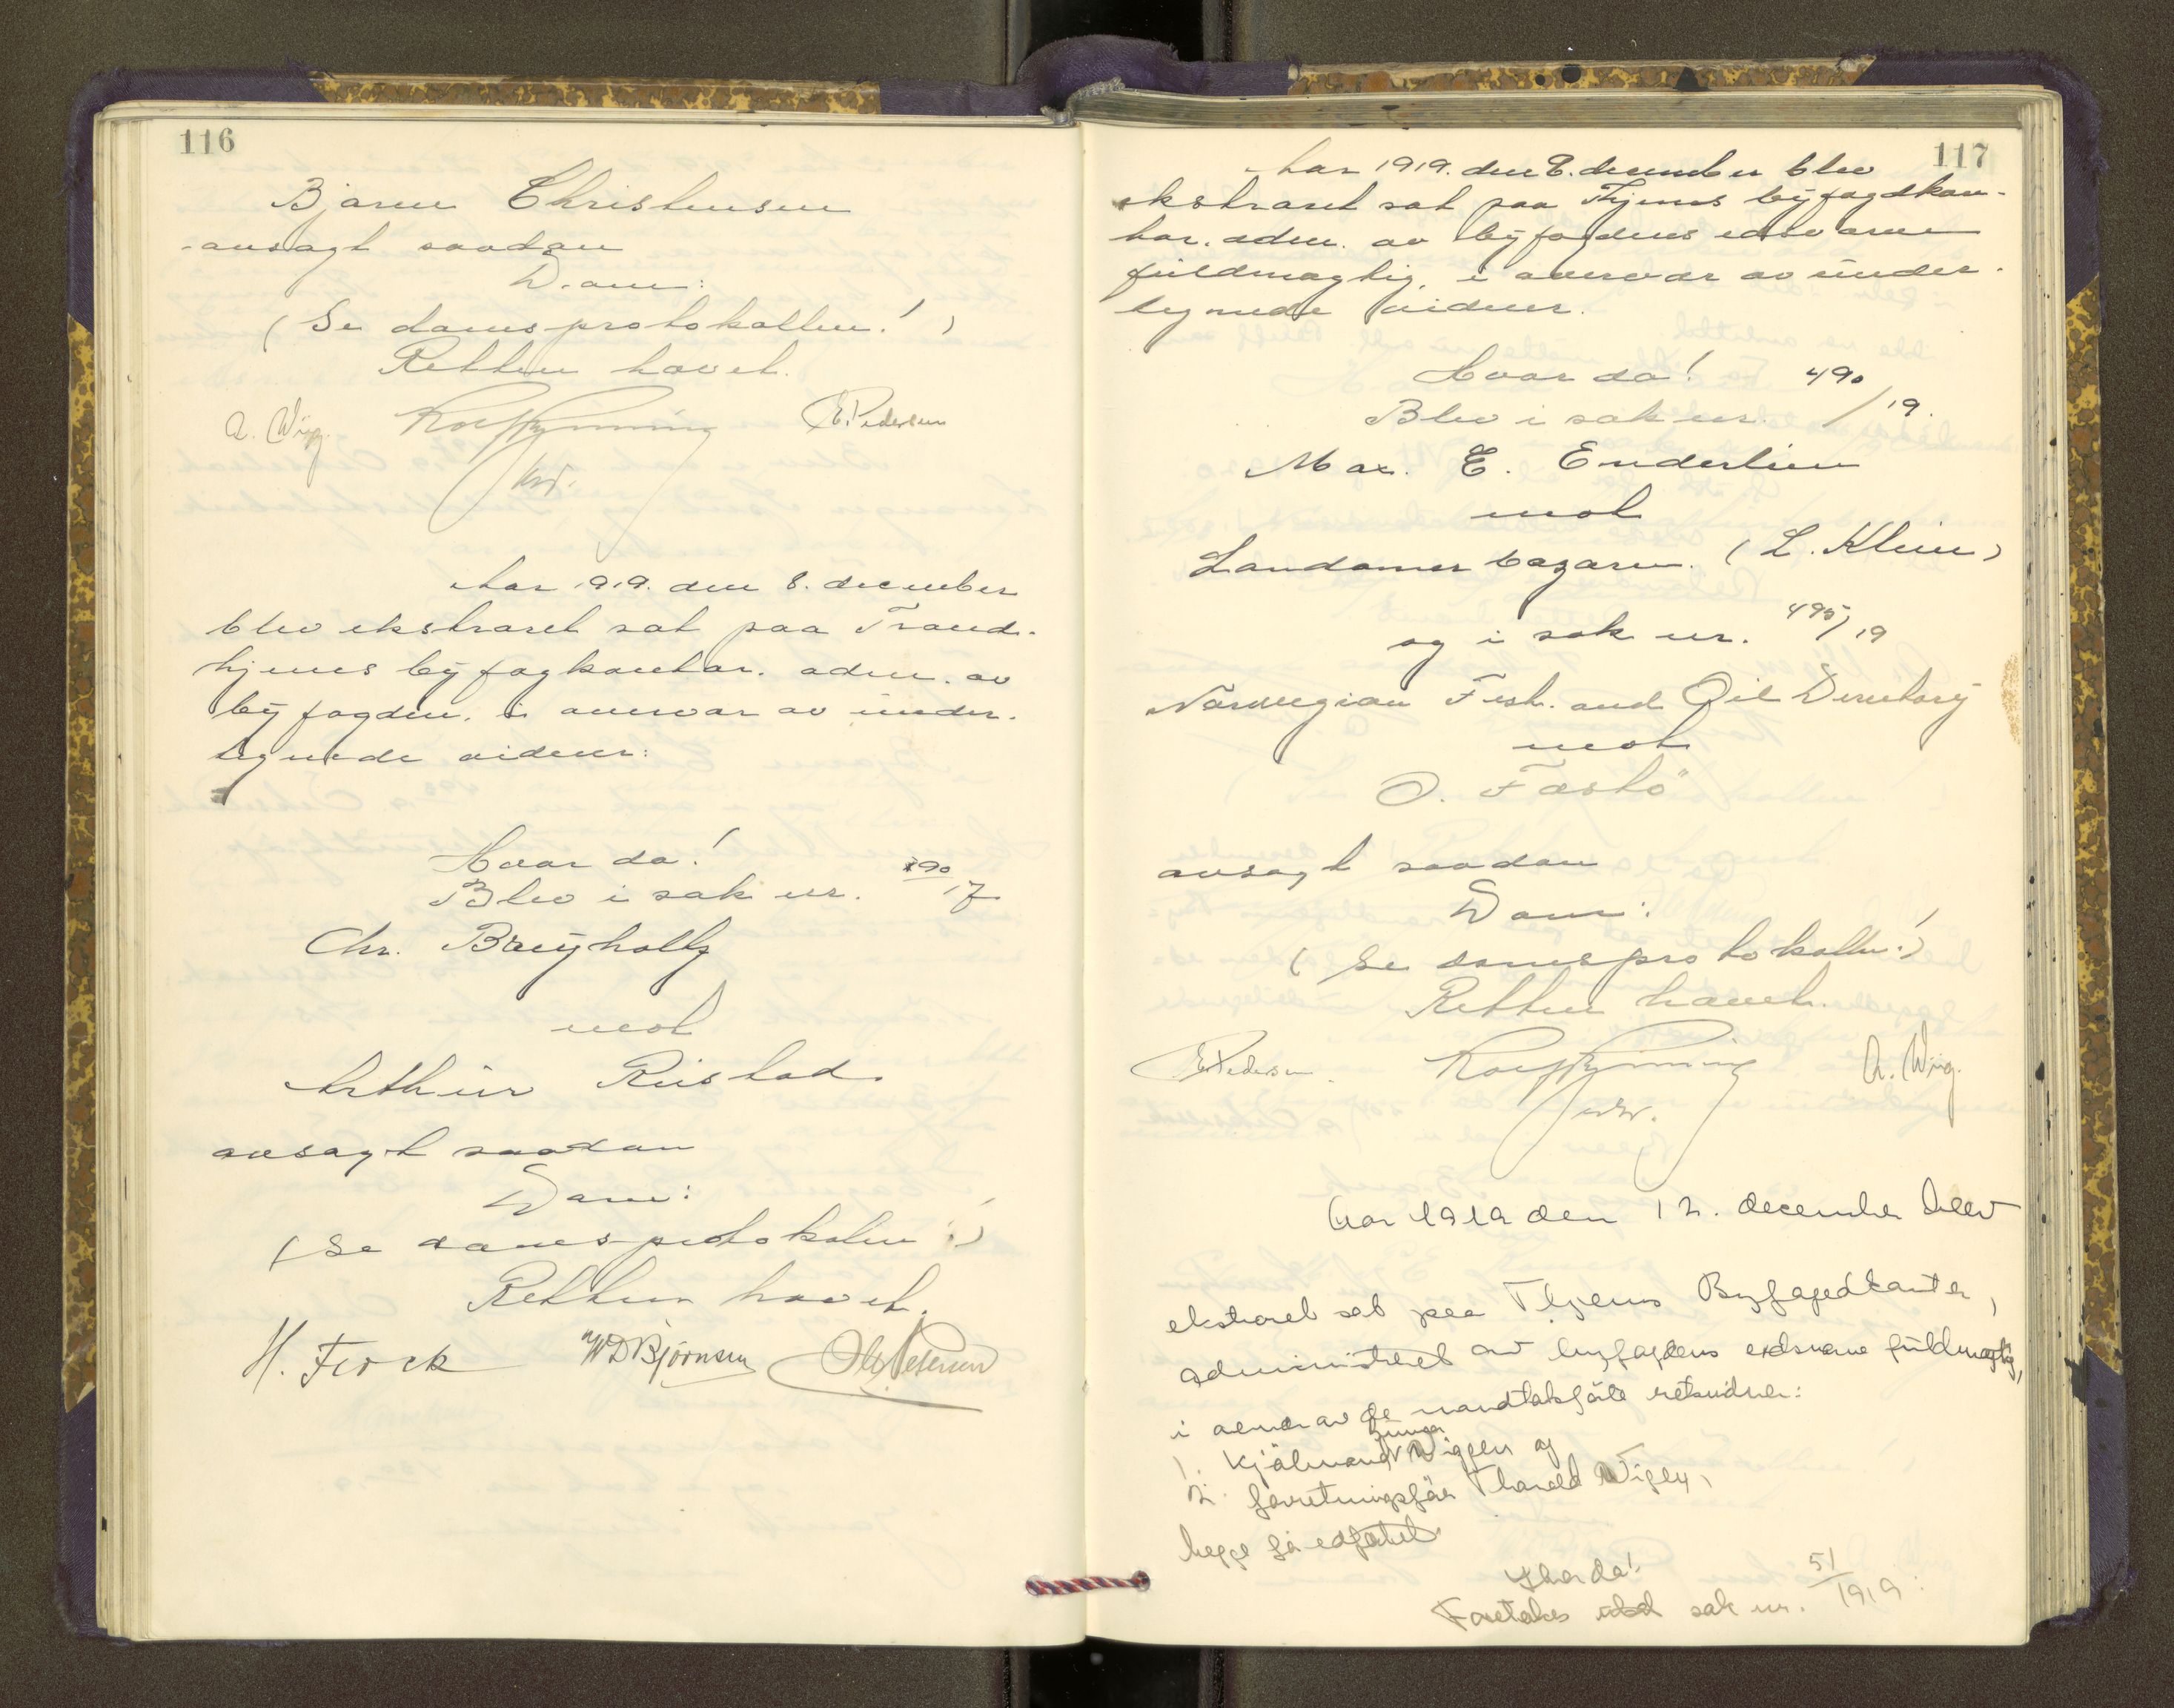 116
Bjarne Christensen
avsagt saadan
Dom:
(Se domsprotokollen!)
Retten hævet.
A. Wiig. E. Pedersen
Aar 1919. den 8. december
blev ekstraret sat paa Trond-
hjems byfogkontor. adm. av
byfogden. i overvær av under-
tegnede vidner:
Hvor da!
Blev i sak nr. 190/17
Chr. Brüyholtz
mot
Arthur Ristad
avsagt saadan
Dom:
(Se domsprotokolen!)
Retten hævet.
H. Ferock WDBjörnsen Ole Petersen
117
Aar 1919. den 8. december blev
ekstraret sat paa Thjems byfogdkon-
tor. adm. av byfogdens edsvorne
fuldmægtig, i overvær av under-
tegnede vidner.
Hvor da!
Blev i sak nr. 490/19.
Max. E. Enderlein
mot
Londoner bazaren. (L. Klein)
og i sak nr. 495/19
Norwegian Fish. and Oil Directory
mot
O. Fastö
avsagt saadan
Dom:
(Se domsprotokollen!)
Retten hævet.
E. Pedersen. A. Wiig.
Aar 1919 den 12. december blev
ekstraret sat paa Thjems Byfogedkontor,
administreret av byfogdens edsvorne fuldmægtig,
i overvær av de mandtalsførte retsvidner:
1. Kjølmand Wiggen og
2. forretningsfør Tharald Wigen,
begge før edfæstet
Hvor da!
Foretokes sak nr. 51/1919: